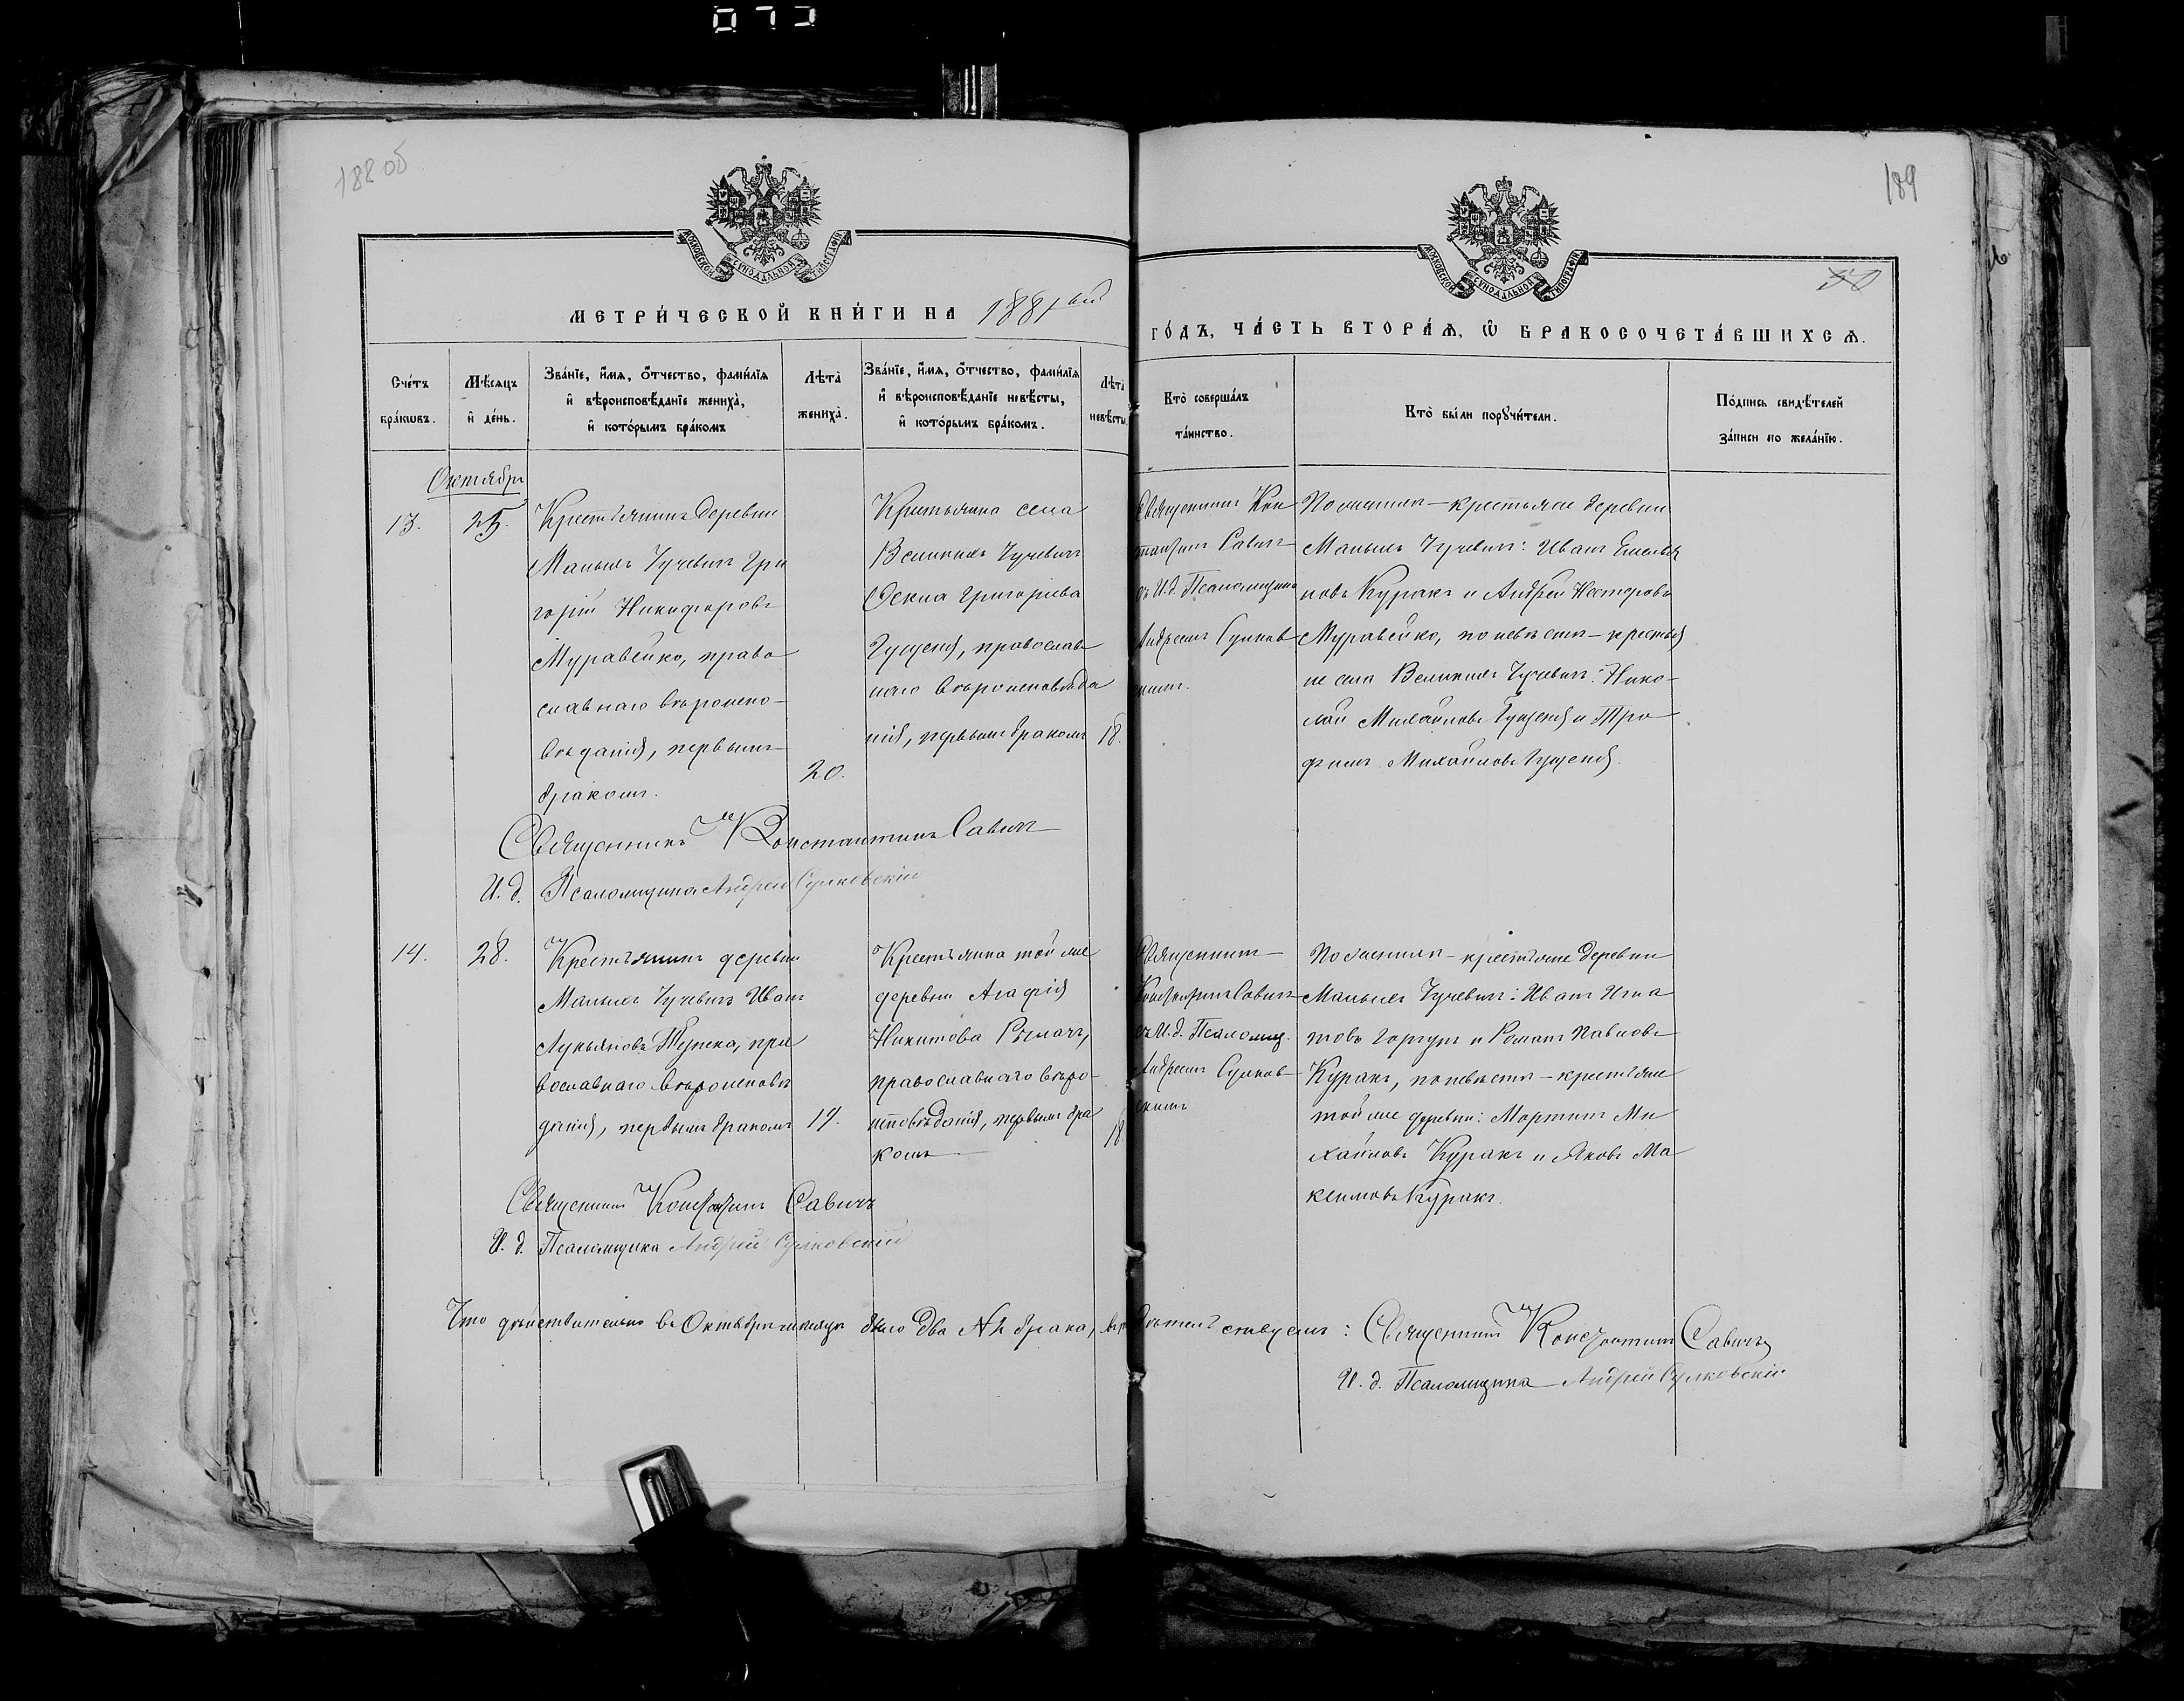 188 об
189
50
МОСКОВСКОЙ СѴНОДАЛЬНОЙ ТИПОГРАФІИ
МОСКОВСКОЙ СѴНОДАЛЬНОЙ ТИПОГРАФІИ
МЕТРИ́ЧЕСКОЙ КНИ́ГИ НА 1881ый
ГО́ДЪ, ЧА́СТЬ ВТОРА́Ѧ, Ѽ БРАКОСОЧЕТА́ВШИХСѦ.
Сче́тъ
бра́кѡвъ.
Мѣ́сяцъ
и҆ де́нь.
Зва́нїе, и҆́мя, о҆́тчество, фами́лїя
и҆ вѣроисповѣ́данїе жениха̀,
и҆ кото́рымъ бра́комъ
Лѣта̀
жениха̀.
Зва́нїе, и҆́мя, о҆́тчество, фами́лїя
и҆ вѣроисповѣ́данїе невѣ́сты,
и҆ кото́рымъ бра́комъ.
Лѣта̀
невѣ́сты.
Кто̀ соверша́лъ
та́инство.
Кто̀ бы́ли порꙋчи́тели.
По́дпись свидѣ́телей
за́писи по жела́нїю.
Октябрь
13.
25.
Крестьянинъ деревни
Малыхъ Чучевичъ Гри
горій Никифоровъ
Муравейко, право
славнаго вѣроиспо-
вѣданія, первымъ
бракомъ.
20.
Крестьянка села
Великихъ Чучевичъ
Ѳекла Григоріева
Гуценя, православ
наго вѣроисповѣда
нія, первымъ бракомъ
18.
Священникъ Кон
стантинъ Савичъ
съ И. д. Псаломщика
Андреемъ Сулков
скимъ.
По женихѣ – крестьяне деревни
Малыхъ Чучевичъ: Иванъ Емелья
новъ Куракъ и Андрей Несторовъ
Муравейко, по невѣстѣ – крестья
не села Великихъ Чучевичъ: Нико-
лай Михайловъ Гуценя и Тро
фимъ Михайловъ Гуценя.
Священникъ Константинъ Савичъ
И. д. Псаломщика Андрей Сулковскій
14.
28.
Крестьянинъ деревни
Малыхъ Чучевичъ Иванъ
Лукьяновъ пра
вославнаго вѣроисповѣ
данія, первымъ бракомъ
19.
Крестьянка той же
деревни Агафія
Никитова
православнаго вѣро-
исповѣданія, первымъ бра
комъ
18.
Священникъ
Константинъ Савичъ
съ И. д. Псаломщ.
Андреемъ Сулков
скимъ
По женихѣ – крестьяне деревни
Малыхъ Чучевичъ: Иванъ Игна
товъ и Романъ Павловъ
Куракъ, по невѣстѣ – крестьяне
той же деревни: Мартинъ Ми
хайловъ Куракъ и Яковъ Ма
ксимовъ Куракъ.
Священникъ Константинъ Савичъ
И. д. Псаломщика Андрей Сулковскій
Что дѣйствительно въ Октябрѣ мѣсяцѣ было два № 2 брака, свидѣтельствуемъ: Священникъ Константинъ Савичъ
И. д. Псаломщика Андрей Сулковскій